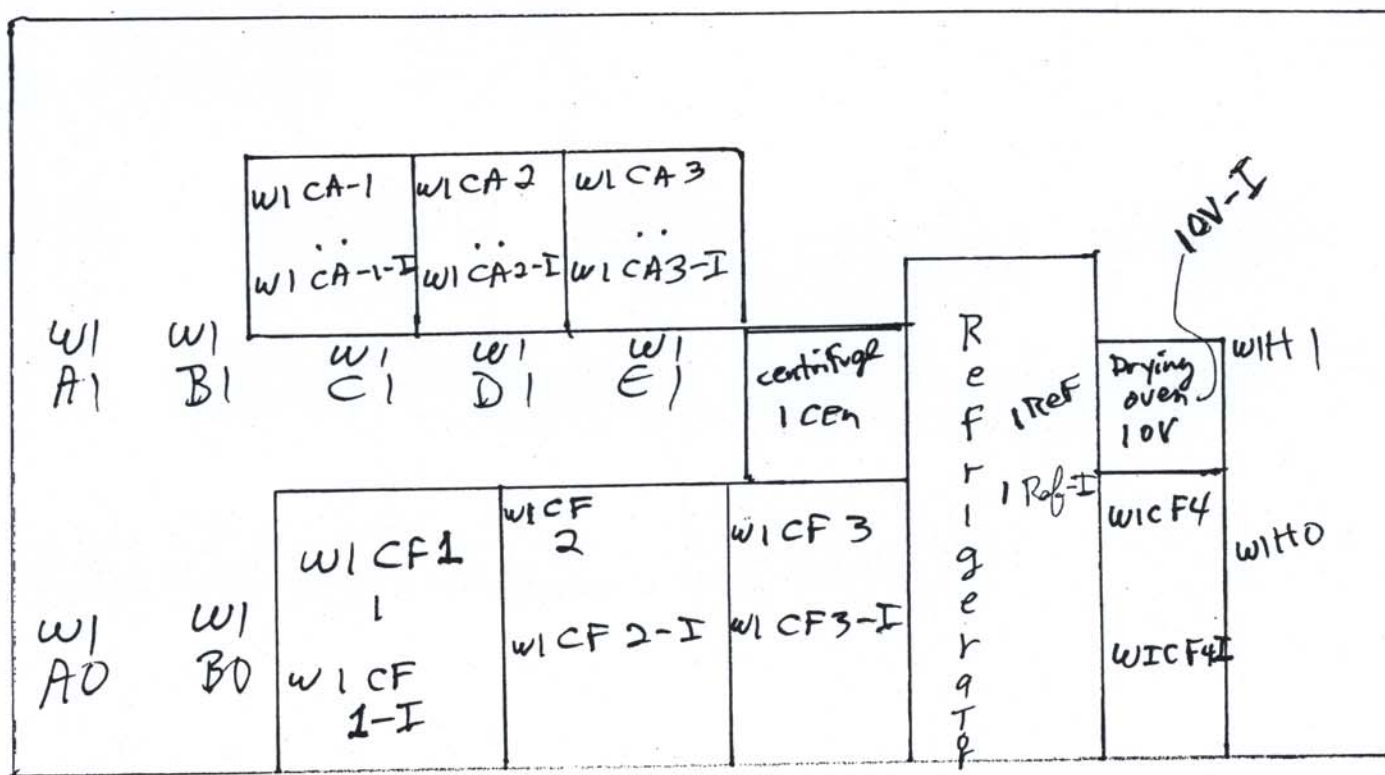 W1 CA-1
W1 CA-1-I
W1 CA 2
W1 CA2-I
W1 CA 3
W1 CA3-I
10V-I
W1
A1
W1
B1
W1
C1
W1
D1
W1
E1
centrifuge
1 CEn
Refrigerator
1 ReF
1 Ref-I
Drying
oven
10V
W1H1
W1
A0
W1
B0
W1 CF1
W1 CF
1-I
W1CF
2
W1 CF 2-I
W1 CF 3
W1 CF3-I
W1CF4
W1CF4I
W1H0